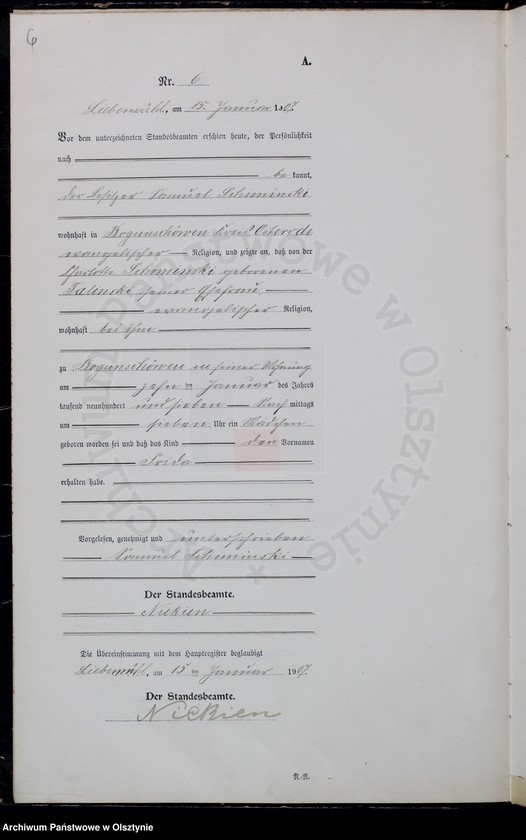 6
A.
Nr. 6
Liebemühl, am 15. Januar 1907.
Vor dem unterzeichneten Standesbeamten erschien heute, der Persönlichkeit
nach
be kannt,
der Besitzer Samuel Schiminski
wohnhaft in Bogunschöwen Kreis Osterode
evangelischer Religion, und zeigte an, daß von der
Charlotte Schiminski geborenen
Talinski seiner Ehefrau,
evangelischer Religion,
wohnhaft bei ihm
zu Bogunschöwen in seiner Wohnung
am zehn ten Januar des Jahres
tausend neunhundert und sieben Nach mittags
um sieben Uhr ein Mädchen
geboren worden sei und daß das Kind den Vornamen
Frida
erhalten habe.
Vorgelesen, genehmigt und unterschrieben
Samuel Schiminski
Der Standesbeamte.
Nickien
Die Übereinstimmung mit dem Hauptregister beglaubigt
Liebemühl, am 15 ten Januar 1907.
Der Standesbeamte.
Nickien
R.-N.
Archiwum Państwowe w Olsztynie
Archiwum Państwowe w Olsztynie